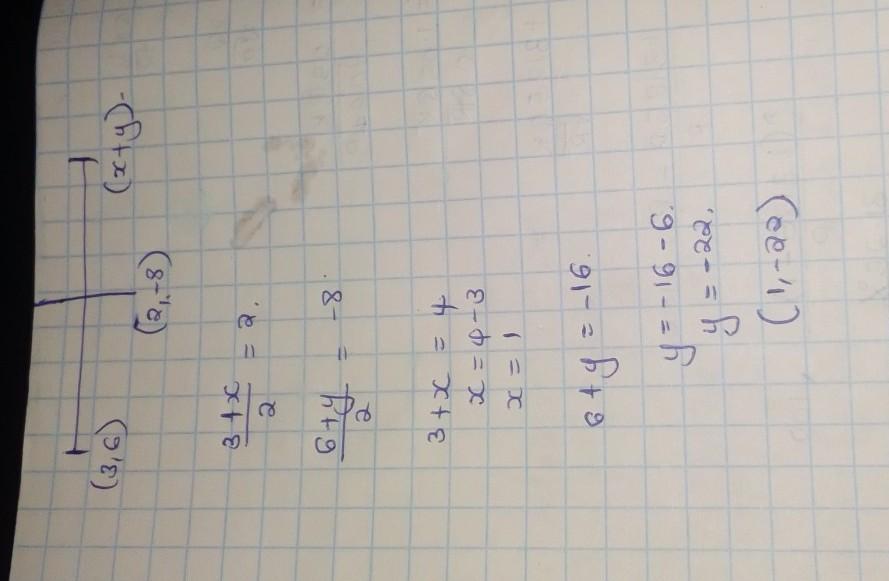 (3,6) (2,-8) (x+y).
3+x/2 = 2.
6+y/2 = -8.
3+x = 4
x = 4-3
x = 1
6+y = -16.
y = -16-6.
y = -22.
(1,-22)